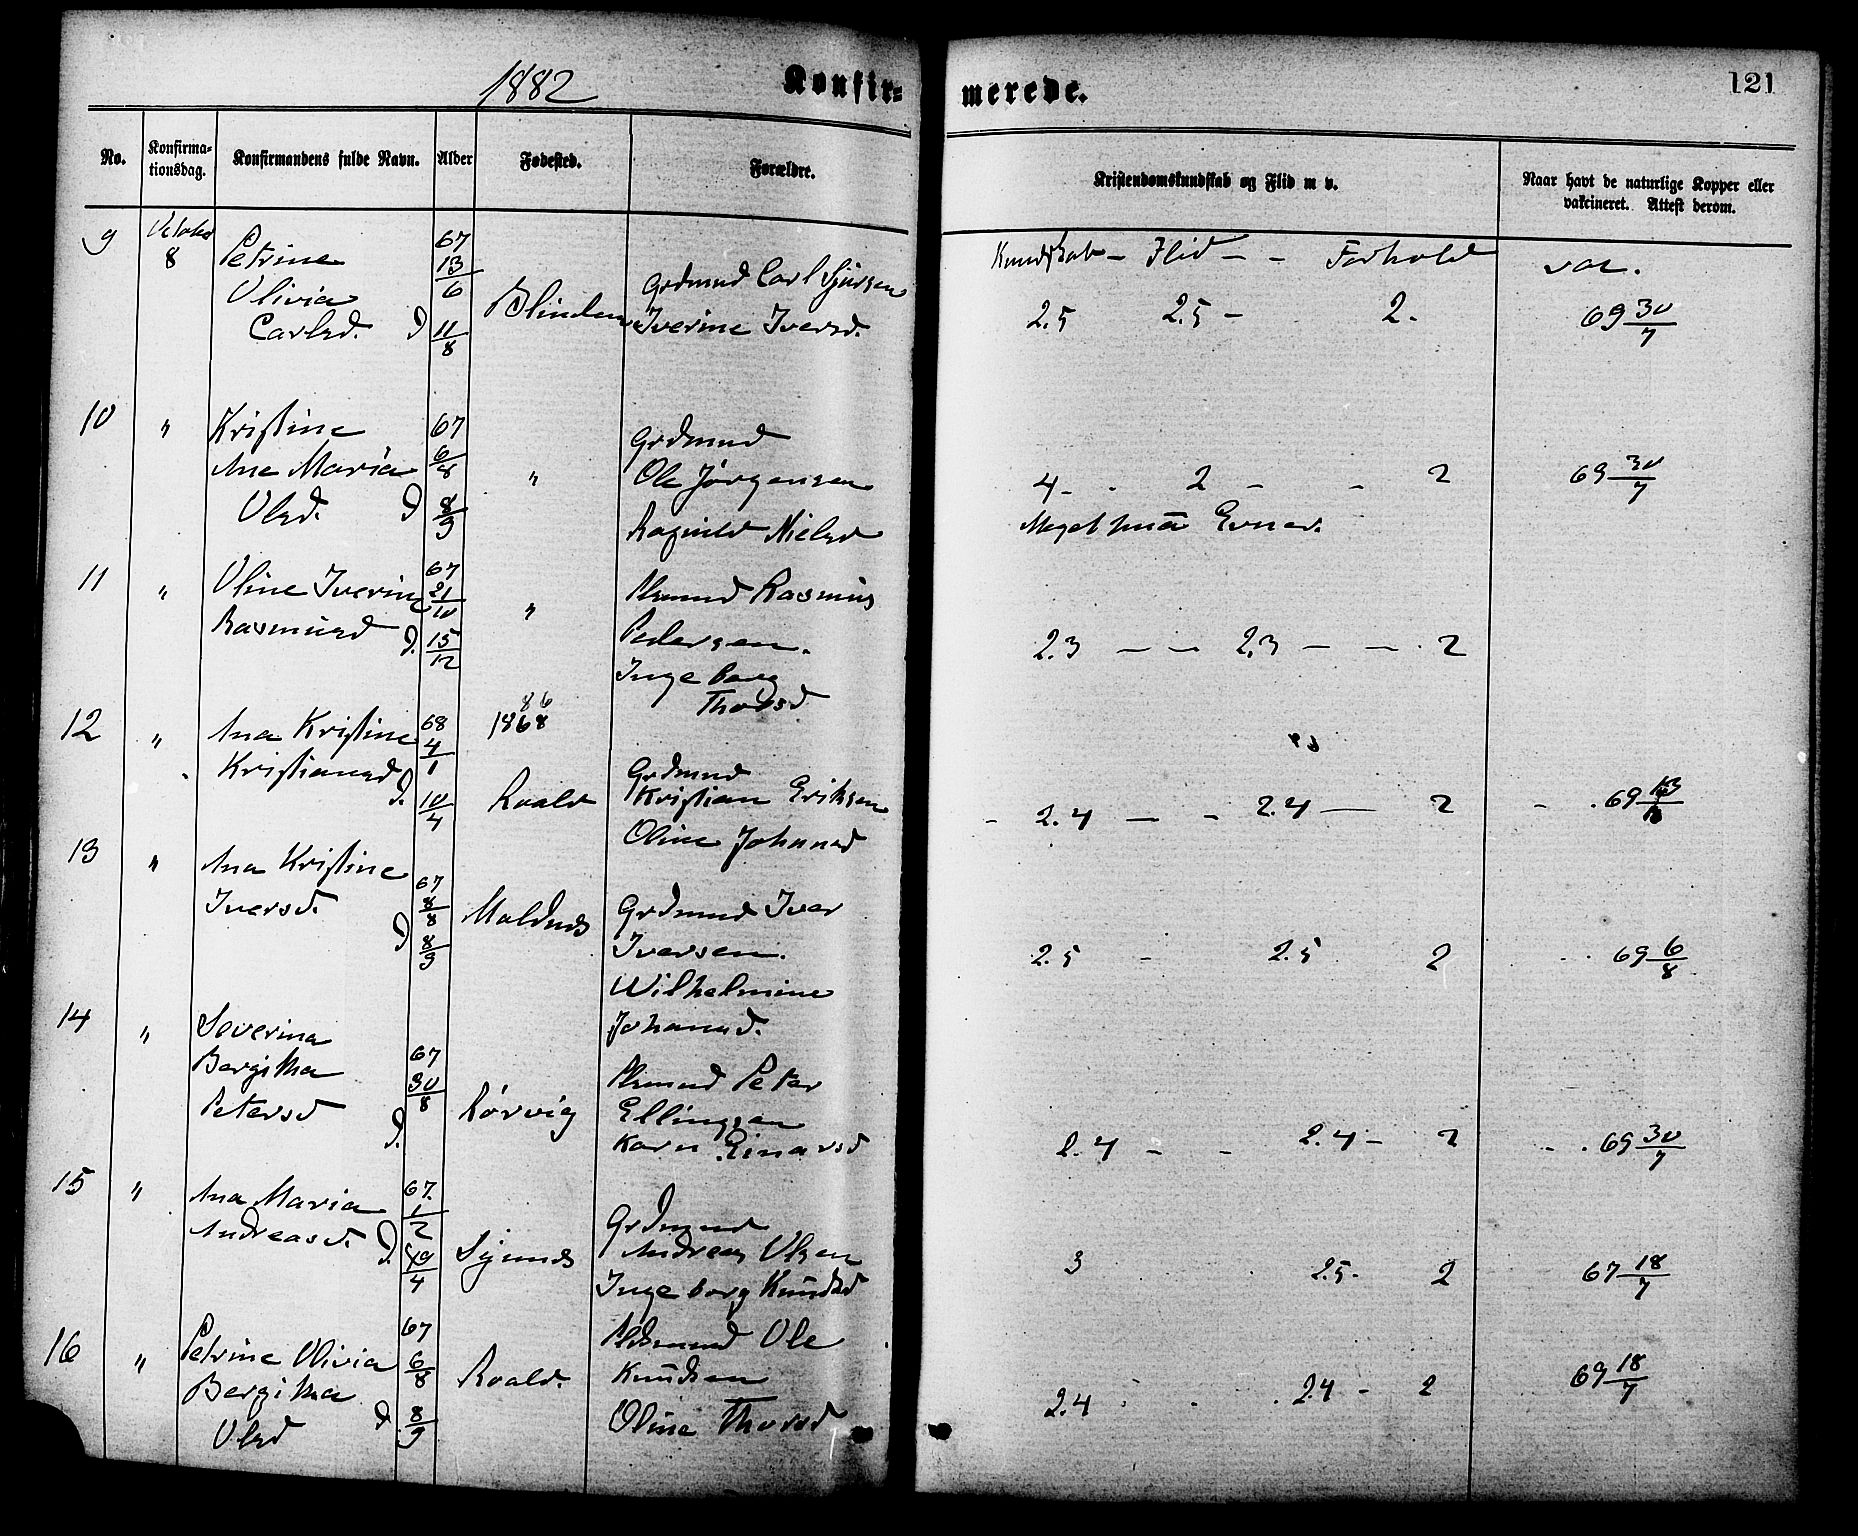 1882
Konfir=
merede.
121
No.
Konfirma-
tionsdag.
Konfirmandens fulde Navn.
Alder
Fødested.
Forældre.
Kristendomskundskab og Flid m v.
Naar havt de naturlige Kopper eller
vakcineret. Attest derom.
9
8
Petrine
Olivia
Carlsd.
D
67
13/6
11/8
Blindem
Grdmnd Carl Sjursen
Iverine Iversd.
Kundskab - Flid - - Forhold
vac.
2.5 2.5 - 2.
69 30/7
10 "
Kristine
Ane Maria
Olsd.
D
67
6/8
8/9
"
Grdmnd
Ole Jørgensen
Ragnild Nielsd
4 - . 2 - - 2
69 30/7
Meget smaa Evner.
11 "
Oline Iverine
Rasmusd
D.
67
21/10
15/12
"
Plsmnd Rasmus
Pedersen.
Ingeborg
Thorsd
2.3 - - 2.3 - - . 2
12 "
Ana Kristine
Kristiansd
D.
68
4/1
10/4
86
1868
Roald
Grdmnd
Kristian Eriksen
Oline Johansd
- 2.4 - - 2.4 - 2
- . 69
13 "
Ana Kristine
Iversd.
D
67
8/8
8/9
Moldnes
Grdmnd Iver
Iversen.
Wilhelmine
Johansd.
2.5 - 2.5 2
69 6/8
14 "
Severina
Bergitha
Petersd
D.
67
30/8
Rørvig
Plsmnd Peter
Ellingsen
Karn Einarsd
2.4 - - 2.4 - 2
- . 69 30/7
15 "
Ana Maria
Andreasd.
D.
67.
1/2
Synnes
Grdmnd
Andreas Olsen
Ingeborg Knudsd
3 2.5. 2
67 18/7
16 "
Petrine Olivia
Bergitha
Olsd
D.
67
6/8
8/9
Roald.
Plsmnd Ole
Knudsen
Oline Thorsd
2.4 . . 2.4 - 2
69 18/7